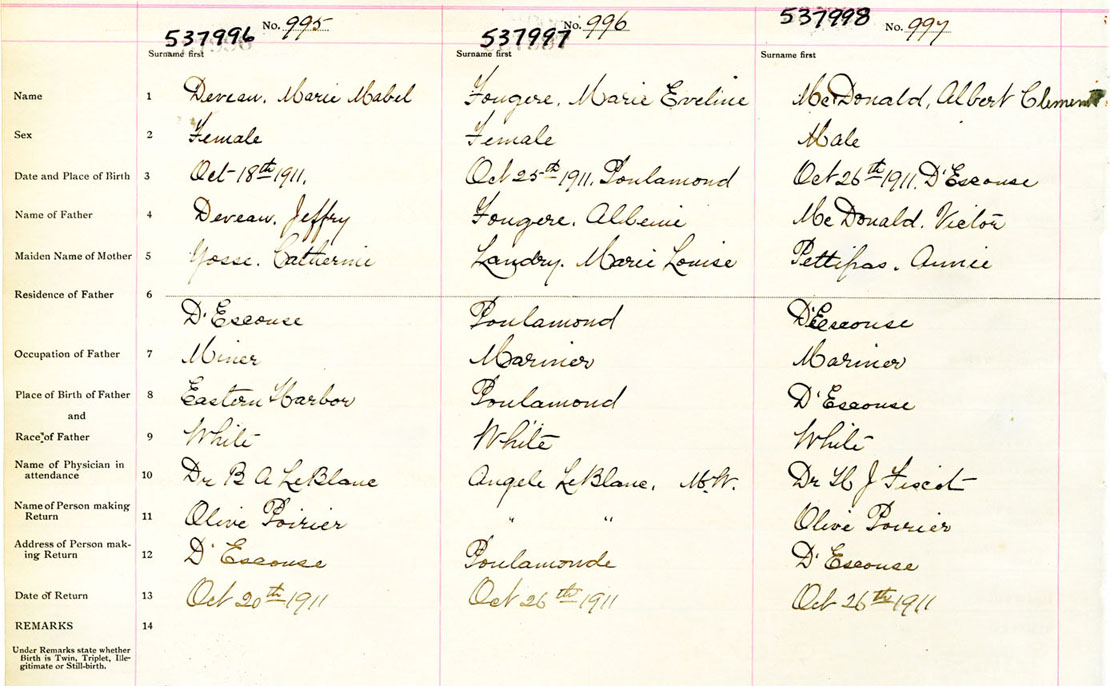 537996 No. 995 537997 No. 996 537998 No. 997
Surname first Surname first Surname first
Name 1 Deveau, Marie Mabel Fougere, Marie Eveline McDonald, Albert Clement
Sex 2 Female Female Male
Date and Place of Birth 3 Oct 18th 1911, Oct 25th 1911, Poulamond Oct 26th 1911, D'Escouse
Name of Father 4 Deveau, Jeffry Fougere, Albenie McDonald, Victor
Maiden Name of Mother 5 Josse, Catherine Landry, Marie Louise Pettipas, Annie
Residence of Father 6
D'Escouse Poulamond D'Escouse
Occupation of Father 7 Miner Mariner Mariner
Place of Birth of Father 8 Eastern Harbor Poulamond D'Escouse
and
Race of Father 9 White White White
Name of Physician in
attendance 10 Dr B A LeBlanc Angele LeBlanc, M.W. Dr H J Fiscot
Name of Person making
Return 11 Olive Poirier " " Olive Poirier
Address of Person mak-
ing Return 12 D'Escouse Poulamonde D'Escouse
Date of Return 13 Oct 20th 1911 Oct 26th 1911 Oct 26th 1911
REMARKS 14
Under Remarks state whether
Birth is Twin, Triplet, Ille-
gitimate or Still-birth.